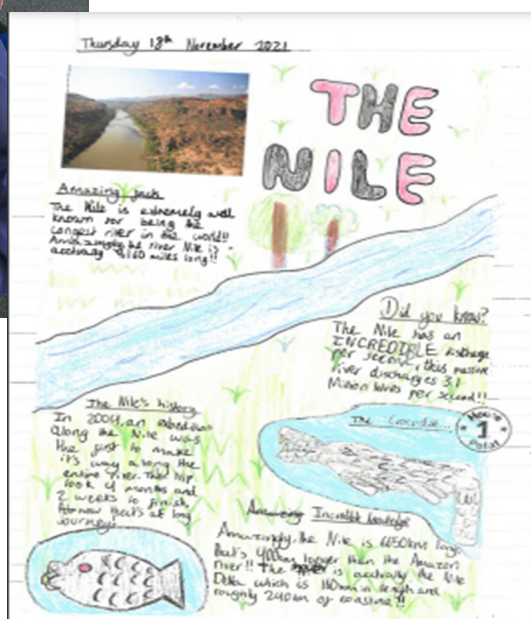 Thursday 18th November 2021
THE
NILE
Amazing fact
The Nile is extremely well
known for being the
longest river in the world!!
the river Nile is
miles long!!
Did you know?
The Nile has an
INCREDIBLE discharge
per second, this massive
river discharges 3.1
Million litres per second!!
The Nile's history
In 2004, an expedition
along the Nile was
the first to make
it's way along the
entire river. The trip
took 4 months and
2 weeks to finish,
now that's a long
journey!
The Crocodile
House
1
Point
Amazing Incredible knowledge
Amazingly, the Nile is 6650km long
that's 400km longer then the Amazon
river!! The is the Nile
Delta which is 160km in length and
roughly 240km of coastline!!